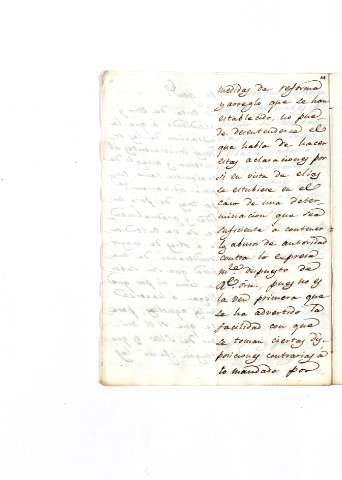 medidas de reforma
y arreglo que se han
establecido, no pue-
de desentenderse el
que habla de hacer
estas aclaraciones por
si en vista de ellas
se estubiere en el
caso de una deter-
minacion que sea
suficiente a contener
los abusos de autoridad
contra lo expresa
mte. dispuesto de
Rl. Orn., pues no es
la vez primera que
se ha advertido la
facilidad con que
se toman ciertas dis-
posiciones contrarias á
lo mandado por